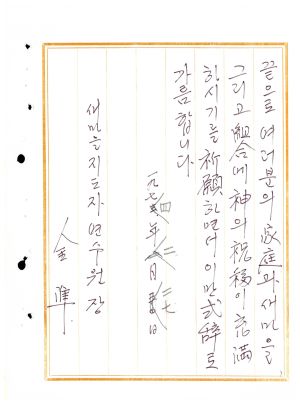 끝으로 여러분의 家庭과 새마을
그리고 組合에 神의 祝福이 充滿
하시기를 祈願하면서 이만 式辭로
가름합니다.
一九七四年 二月 二七日
새마을지도자연수원장
金準